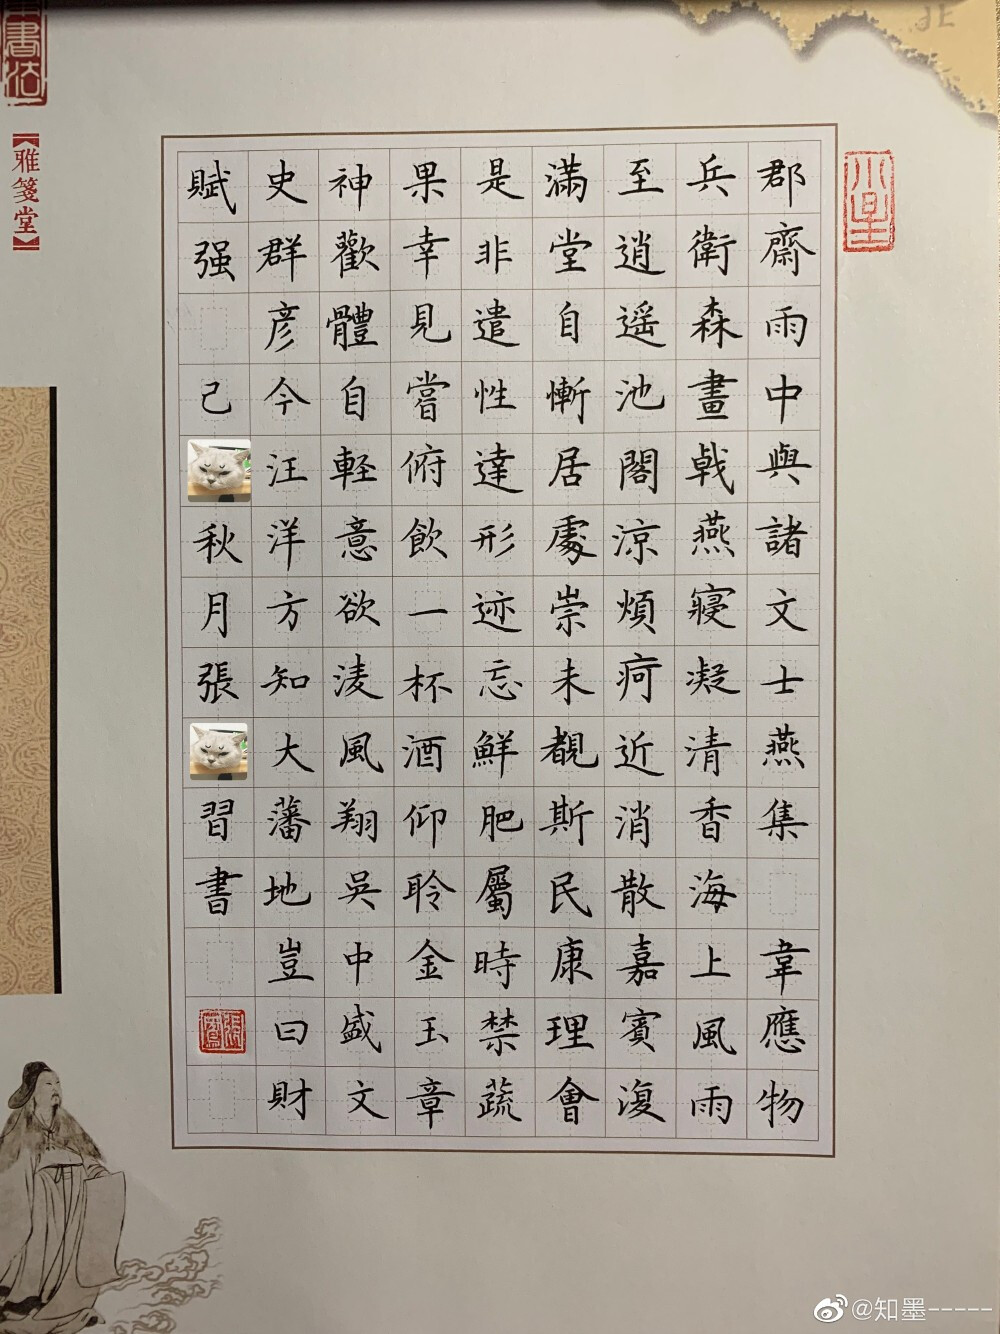 郡齋雨中與諸文士燕集韋應物
兵衛森畫戟燕寢凝清香海上風雨
至逍遥池閣涼煩疴近消散嘉賓復
滿堂自慚居處崇未覩斯民康理會
是非遣性達形迹忘鮮肥屬時禁蔬
果幸見嘗俯飲一杯酒仰聆金玉章
神歡體自輕意欲淩風翔吳中盛文
史群彦今汪洋方知大藩地豈曰財
賦强己秋月張習書
雅箋堂
書法
@知墨-----